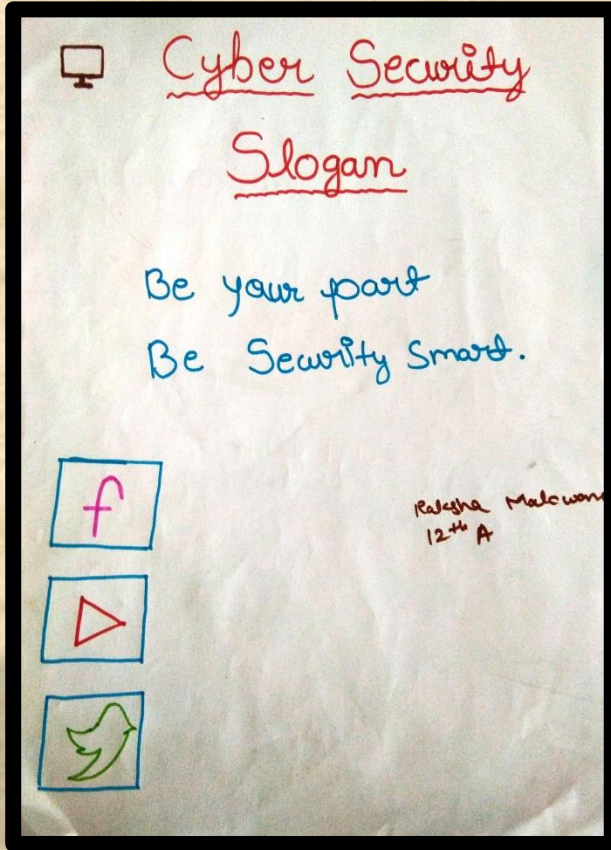 Cyber Security
Slogan
Be your part
Be Security Smart.
f
Raksha
12th A